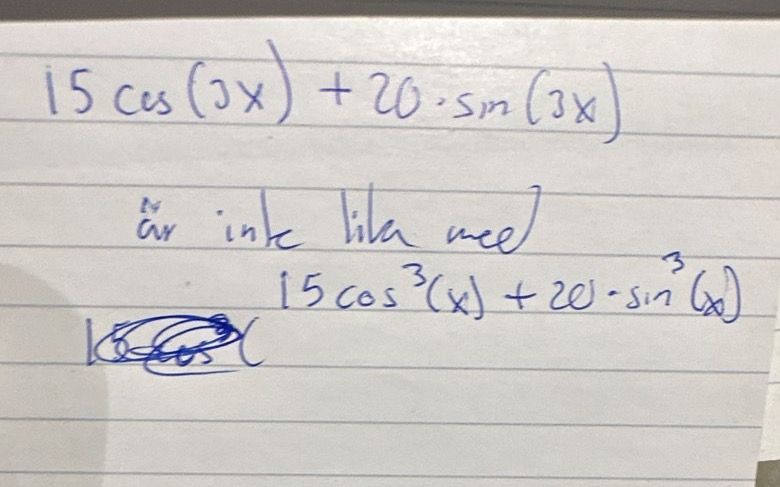 15 cos(3x) + 20 · sin(3x)
är inte lika med
15 cos³(x) + 20 · sin³(x)